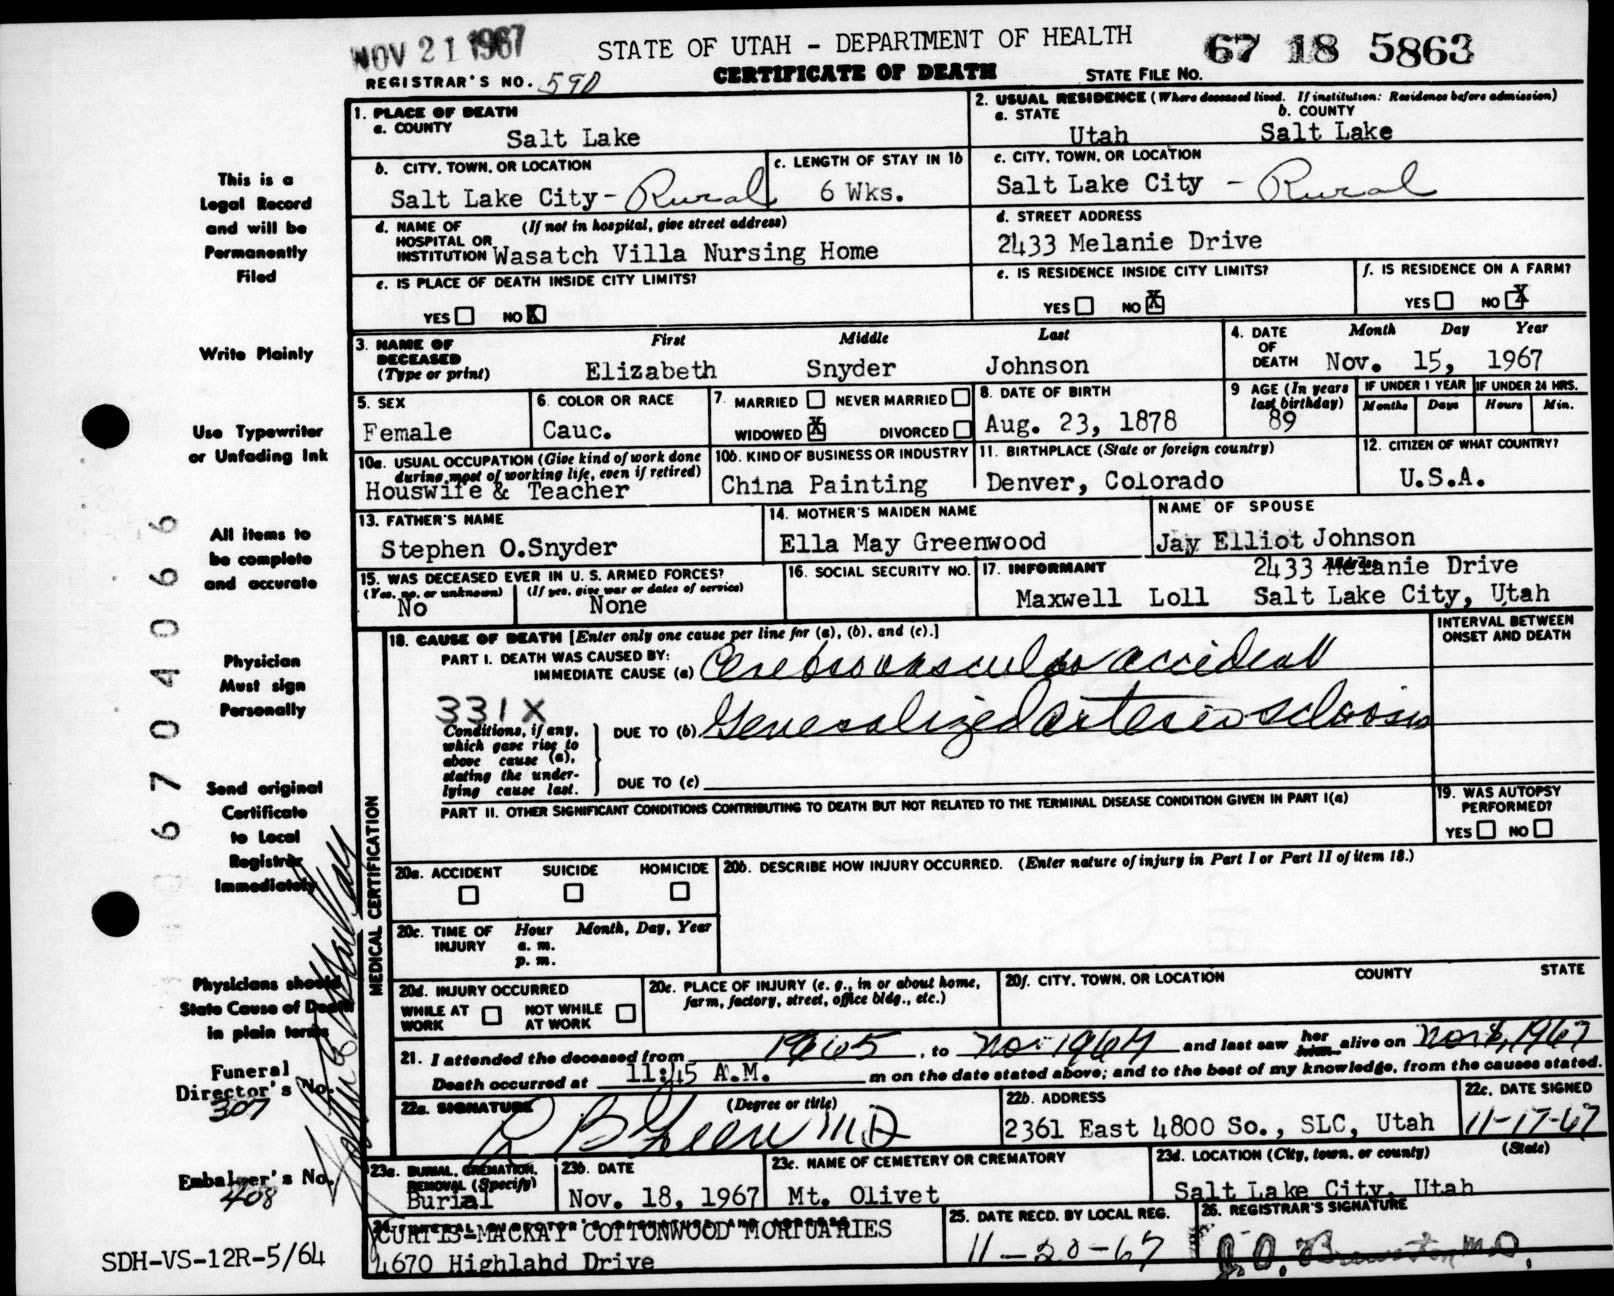 NOV 21 1967
STATE OF UTAH - DEPARTMENT OF HEALTH
67 18 5863
REGISTRAR'S NO. 590
CERTIFICATE OF DEATH
STATE FILE NO.
1. PLACE OF DEATH
a. COUNTY
Salt Lake
2. USUAL RESIDENCE (Where deceased lived. If institution: Residence before admission)
a. STATE
b. COUNTY
Utah
Salt Lake
b. CITY, TOWN, OR LOCATION
Salt Lake City - Rural
c. LENGTH OF STAY IN 1b
6 Wks.
c. CITY, TOWN, OR LOCATION
Salt Lake City - Rural
d. NAME OF HOSPITAL OR INSTITUTION
(If not in hospital, give street address)
Wasatch Villa Nursing Home
d. STREET ADDRESS
2433 Melanie Drive
e. IS PLACE OF DEATH INSIDE CITY LIMITS?
YES NO X
e. IS RESIDENCE INSIDE CITY LIMITS?
YES NO X
f. IS RESIDENCE ON A FARM?
YES NO X
3. NAME OF DECEASED (Type or print)
First Middle Last
Elizabeth Snyder Johnson
4. DATE OF DEATH
Month Day Year
Nov. 15, 1967
5. SEX
Female
6. COLOR OR RACE
Cauc.
7. MARRIED NEVER MARRIED
WIDOWED X DIVORCED
8. DATE OF BIRTH
Aug. 23, 1878
9 AGE (In years last birthday)
89
IF UNDER 1 YEAR
Months Days
IF UNDER 24 HRS.
Hours Min.
10a. USUAL OCCUPATION (Give kind of work done during most of working life, even if retired)
Houswife & Teacher
10b. KIND OF BUSINESS OR INDUSTRY
China Painting
11. BIRTHPLACE (State or foreign country)
Denver, Colorado
12. CITIZEN OF WHAT COUNTRY?
U.S.A.
13. FATHER'S NAME
Stephen O.Snyder
14. MOTHER'S MAIDEN NAME
Ella May Greenwood
NAME OF SPOUSE
Jay Elliot Johnson
15. WAS DECEASED EVER IN U. S. ARMED FORCES?
(Yes, no, or unknown) (If yes, give war or dates of service)
No None
16. SOCIAL SECURITY NO.
17. INFORMANT
Maxwell Loll
2433 Melanie Drive
Salt Lake City, Utah
MEDICAL CERTIFICATION
18. CAUSE OF DEATH [Enter only one cause per line for (a), (b), and (c).]
INTERVAL BETWEEN ONSET AND DEATH
PART I. DEATH WAS CAUSED BY:
IMMEDIATE CAUSE (a) Cerebrovascular accident
331X
Conditions, if any, which gave rise to above cause (a), stating the underlying cause last.
DUE TO (b) Generalized arteriosclerosis
DUE TO (c)
PART II. OTHER SIGNIFICANT CONDITIONS CONTRIBUTING TO DEATH BUT NOT RELATED TO THE TERMINAL DISEASE CONDITION GIVEN IN PART I(a)
19. WAS AUTOPSY PERFORMED?
YES NO
20a. ACCIDENT SUICIDE HOMICIDE
20b. DESCRIBE HOW INJURY OCCURRED. (Enter nature of injury in Part I or Part II of item 18.)
20c. TIME OF INJURY
Hour Month, Day, Year
a. m.
p. m.
20d. INJURY OCCURRED
WHILE AT WORK NOT WHILE AT WORK
20e. PLACE OF INJURY (e. g., in or about home, farm, factory, street, office bldg., etc.)
20f. CITY, TOWN, OR LOCATION COUNTY STATE
21. I attended the deceased from 1965, to Nov 1967 and last saw her him alive on Nov 1967
Death occurred at 11:45 A.M. m on the date stated above; and to the best of my knowledge, from the causes stated.
22a. SIGNATURE (Degree or title)
R B Green MD
22b. ADDRESS
2361 East 4800 So., SLC, Utah
22c. DATE SIGNED
11-17-67
23a. BURIAL, CREMATION, REMOVAL (Specify)
Burial
23b. DATE
Nov. 18, 1967
23c. NAME OF CEMETERY OR CREMATORY
Mt. Olivet
23d. LOCATION (City, town, or county) (State)
Salt Lake City, Utah
CURTIS-MACKAY COTTONWOOD MORTUARIES
4670 Highland Drive
25. DATE RECD. BY LOCAL REG.
11-20-67
26. REGISTRAR'S SIGNATURE
This is a
Legal Record
and will be
Permanently
Filed
Write Plainly
Use Typewriter
or Unfading Ink
All items to
be complete
and accurate
Physician
Must sign
Personally
Send original
Certificate
to Local
Registrar
Immediately
Physicians should
State Cause of Death
in plain terms
Funeral
Director's No.
307
Embalmer's No.
408
SDH-VS-12R-5/64